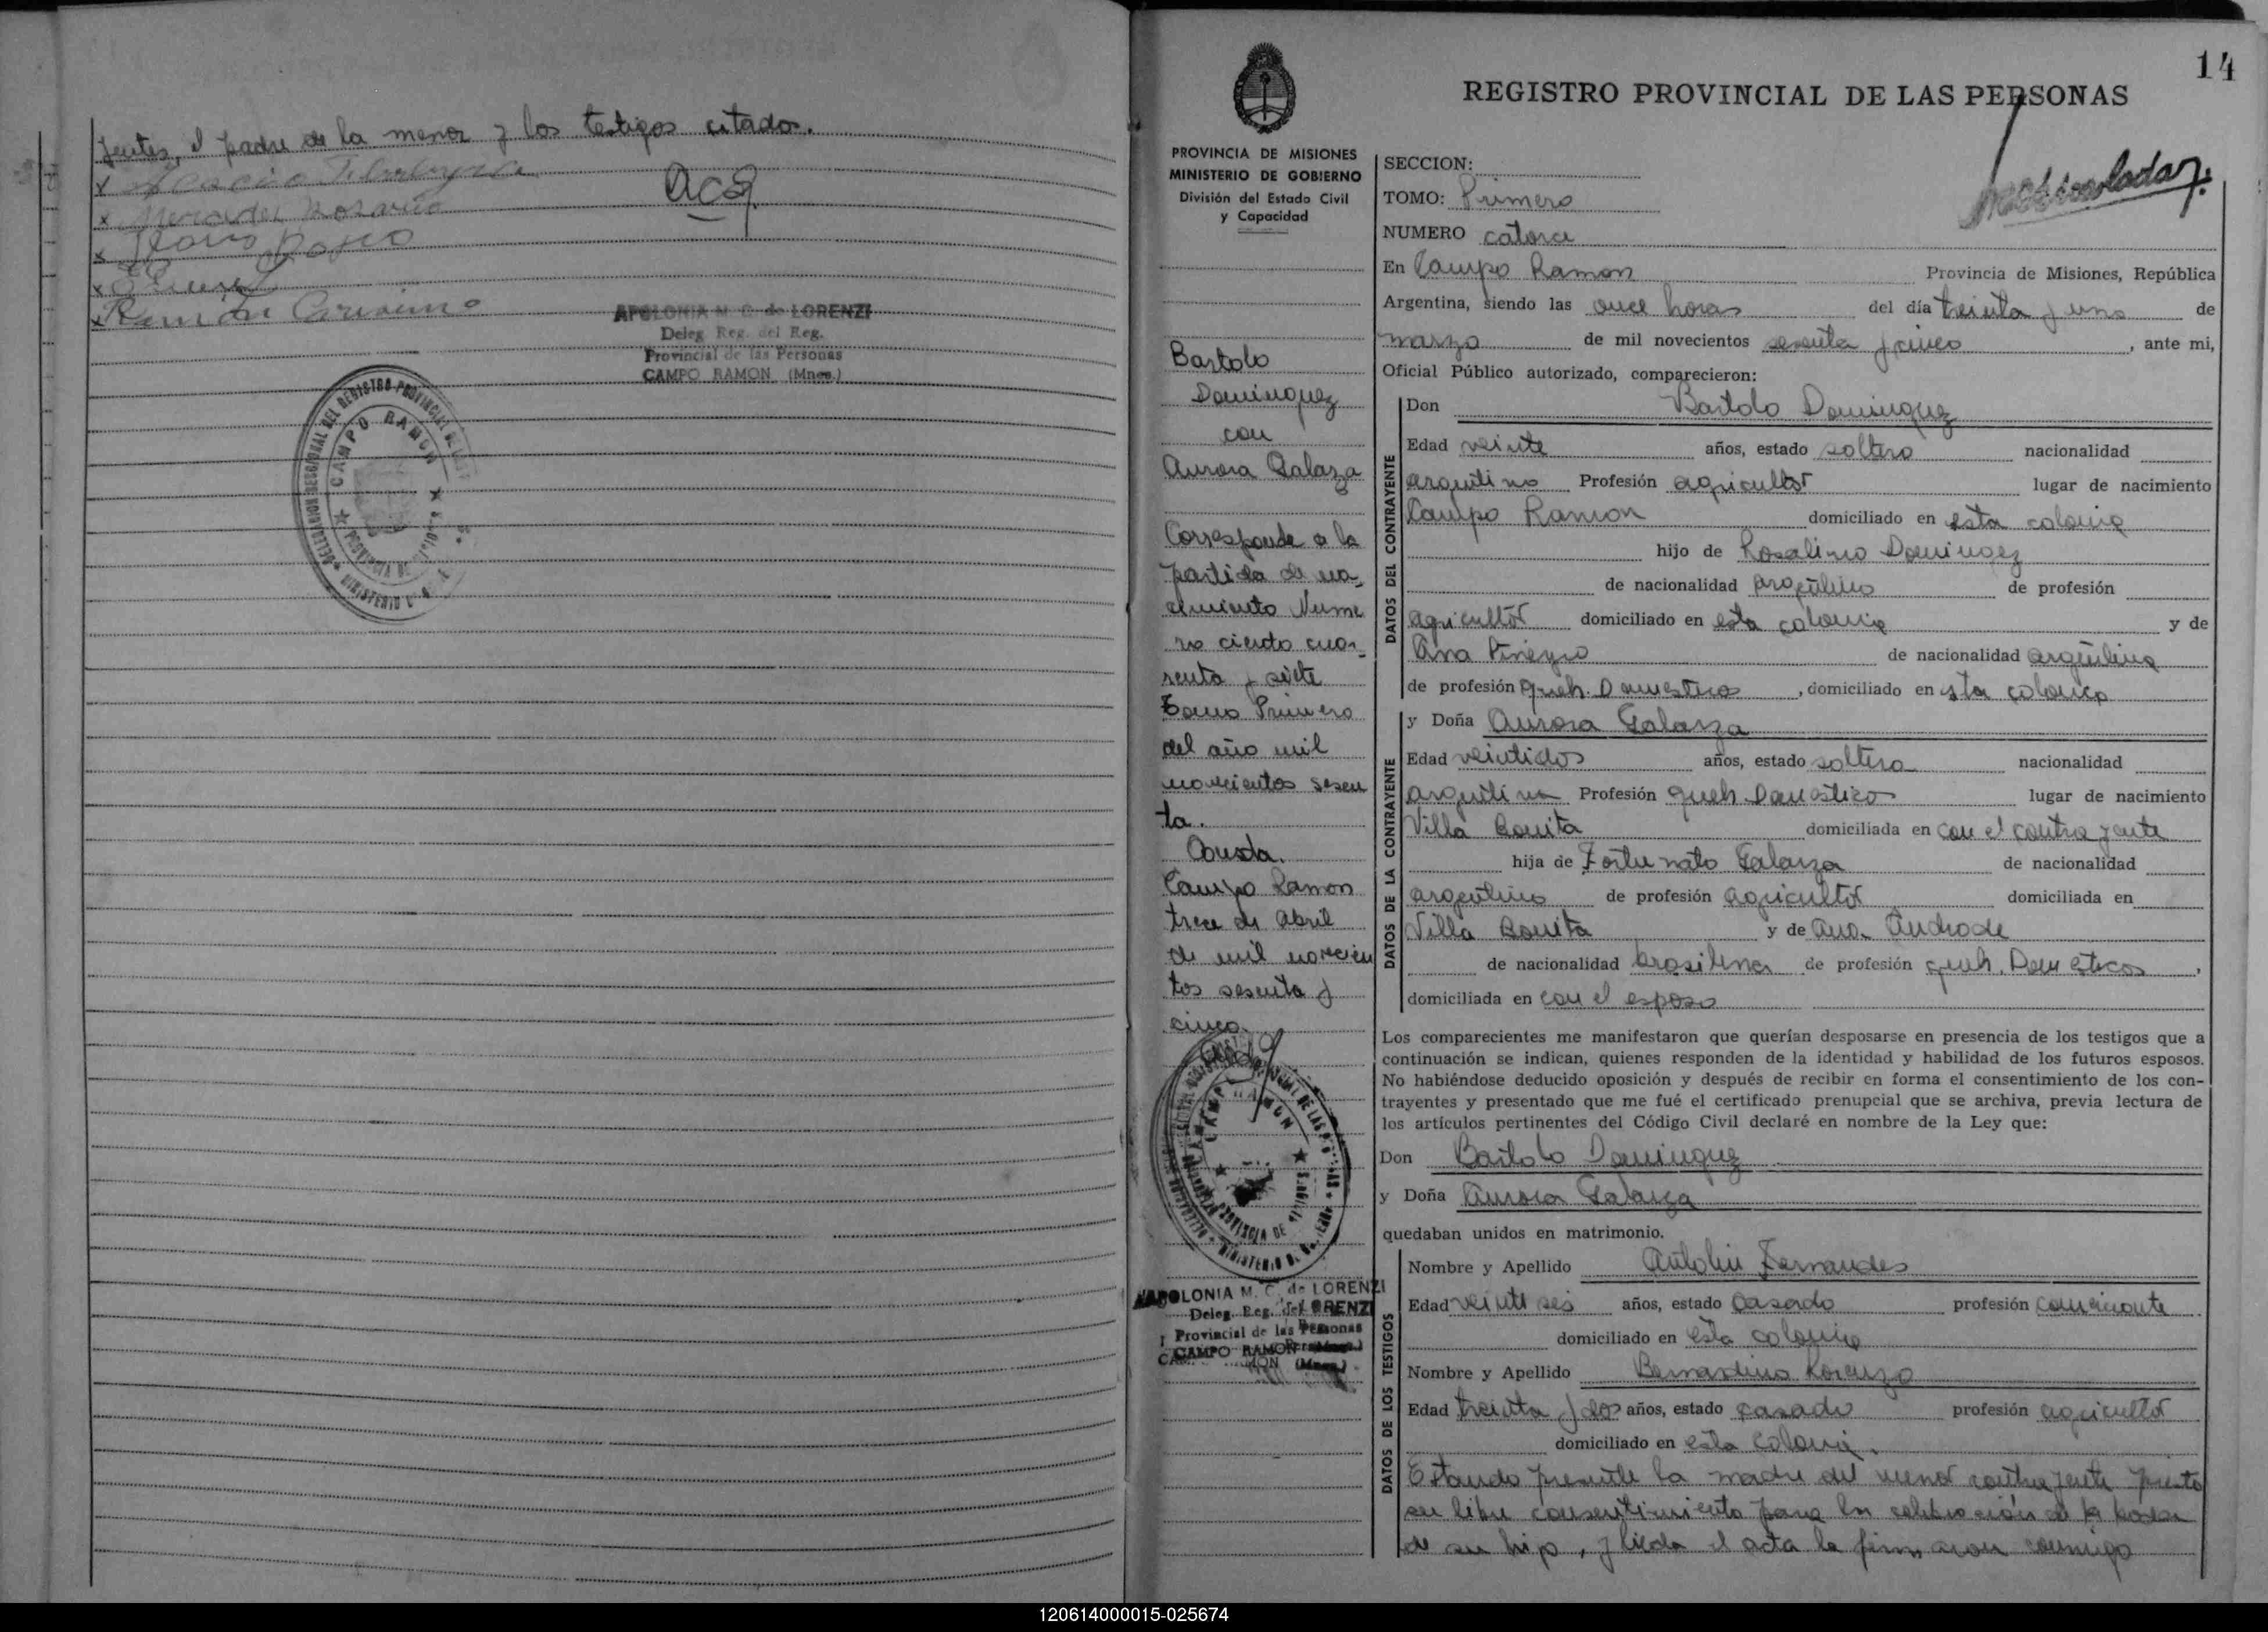 yentes, el padre de la menor y los testigos citados.
Mercedes Rosario
Ramón
APOLONIA M. C. de LORENZI
Deleg. Reg. del Reg.
Provincial de las Personas
CAMPO RAMON (Mnes.)
CAMPO RAMON
14
REGISTRO PROVINCIAL DE LAS PERSONAS
PROVINCIA DE MISIONES
MINISTERIO DE GOBIERNO
División del Estado Civil
y Capacidad
Bartolo
Dominguez
con
Aurora Galaza
Corresponde a la
partida de na-
cimiento Nume
ro ciento cua-
renta y siete
Tomo Primero
del año mil
novecientos sesen
ta.
Consta.
Campo Ramon
trece de Abril
de mil novecien
tos sesenta y
cinco.
CAMPO RAMON
APOLONIA M. C. de LORENZI
Deleg. Reg. del
Provincial de las Personas
CAMPO RAMON
SECCION:
TOMO: Primero
NUMERO catorce
En Campo Ramon Provincia de Misiones, República
Argentina, siendo las once horas del día treinta y uno de
marzo de mil novecientos sesenta y cinco, ante mi,
Oficial Público autorizado, comparecieron:
DATOS DEL CONTRAYENTE
Don Bartolo Dominguez
Edad veinte años, estado soltero nacionalidad
argentino Profesión agricultor lugar de nacimiento
Campo Ramon domiciliado en esta colonia
hijo de Rosalino Dominguez
de nacionalidad argentino de profesión
agricultor domiciliado en esta colonia y de
Ana Pineyro de nacionalidad argentina
de profesión queh. Domesticos, domiciliado en esta colonia
DATOS DE LA CONTRAYENTE
y Doña Aurora Galarza
Edad veintidos años, estado soltera nacionalidad
argentina Profesión queh. Domestico lugar de nacimiento
Villa Bonita domiciliada en con el contrayente
hija de Fortunato Galarza de nacionalidad
argentino de profesión agricultor domiciliada en
Villa Bonita y de Ana Andrade
de nacionalidad brasilena de profesión queh. Domesticos,
domiciliada en con el esposo
Los comparecientes me manifestaron que querían desposarse en presencia de los testigos que a
continuación se indican, quienes responden de la identidad y habilidad de los futuros esposos.
No habiéndose deducido oposición y después de recibir en forma el consentimiento de los con-
trayentes y presentado que me fué el certificado prenupcial que se archiva, previa lectura de
los artículos pertinentes del Código Civil declaré en nombre de la Ley que:
Don Bartolo Dominguez
y Doña Aurora Galarza
quedaban unidos en matrimonio.
DATOS DE LOS TESTIGOS
Nombre y Apellido Antolin Fernandes
Edad veintiseis años, estado casado profesión comerciante
domiciliado en esta colonia
Nombre y Apellido Bernardino Lorenzo
Edad treinta y dos años, estado casado profesión agricultor
domiciliado en esta colonia.
Estando presente la madre del menor contrayente presto
su libre consentimiento para la celebración de la boda
de su hijo, y leida el acta la firmaron conmigo
120614000015-025674